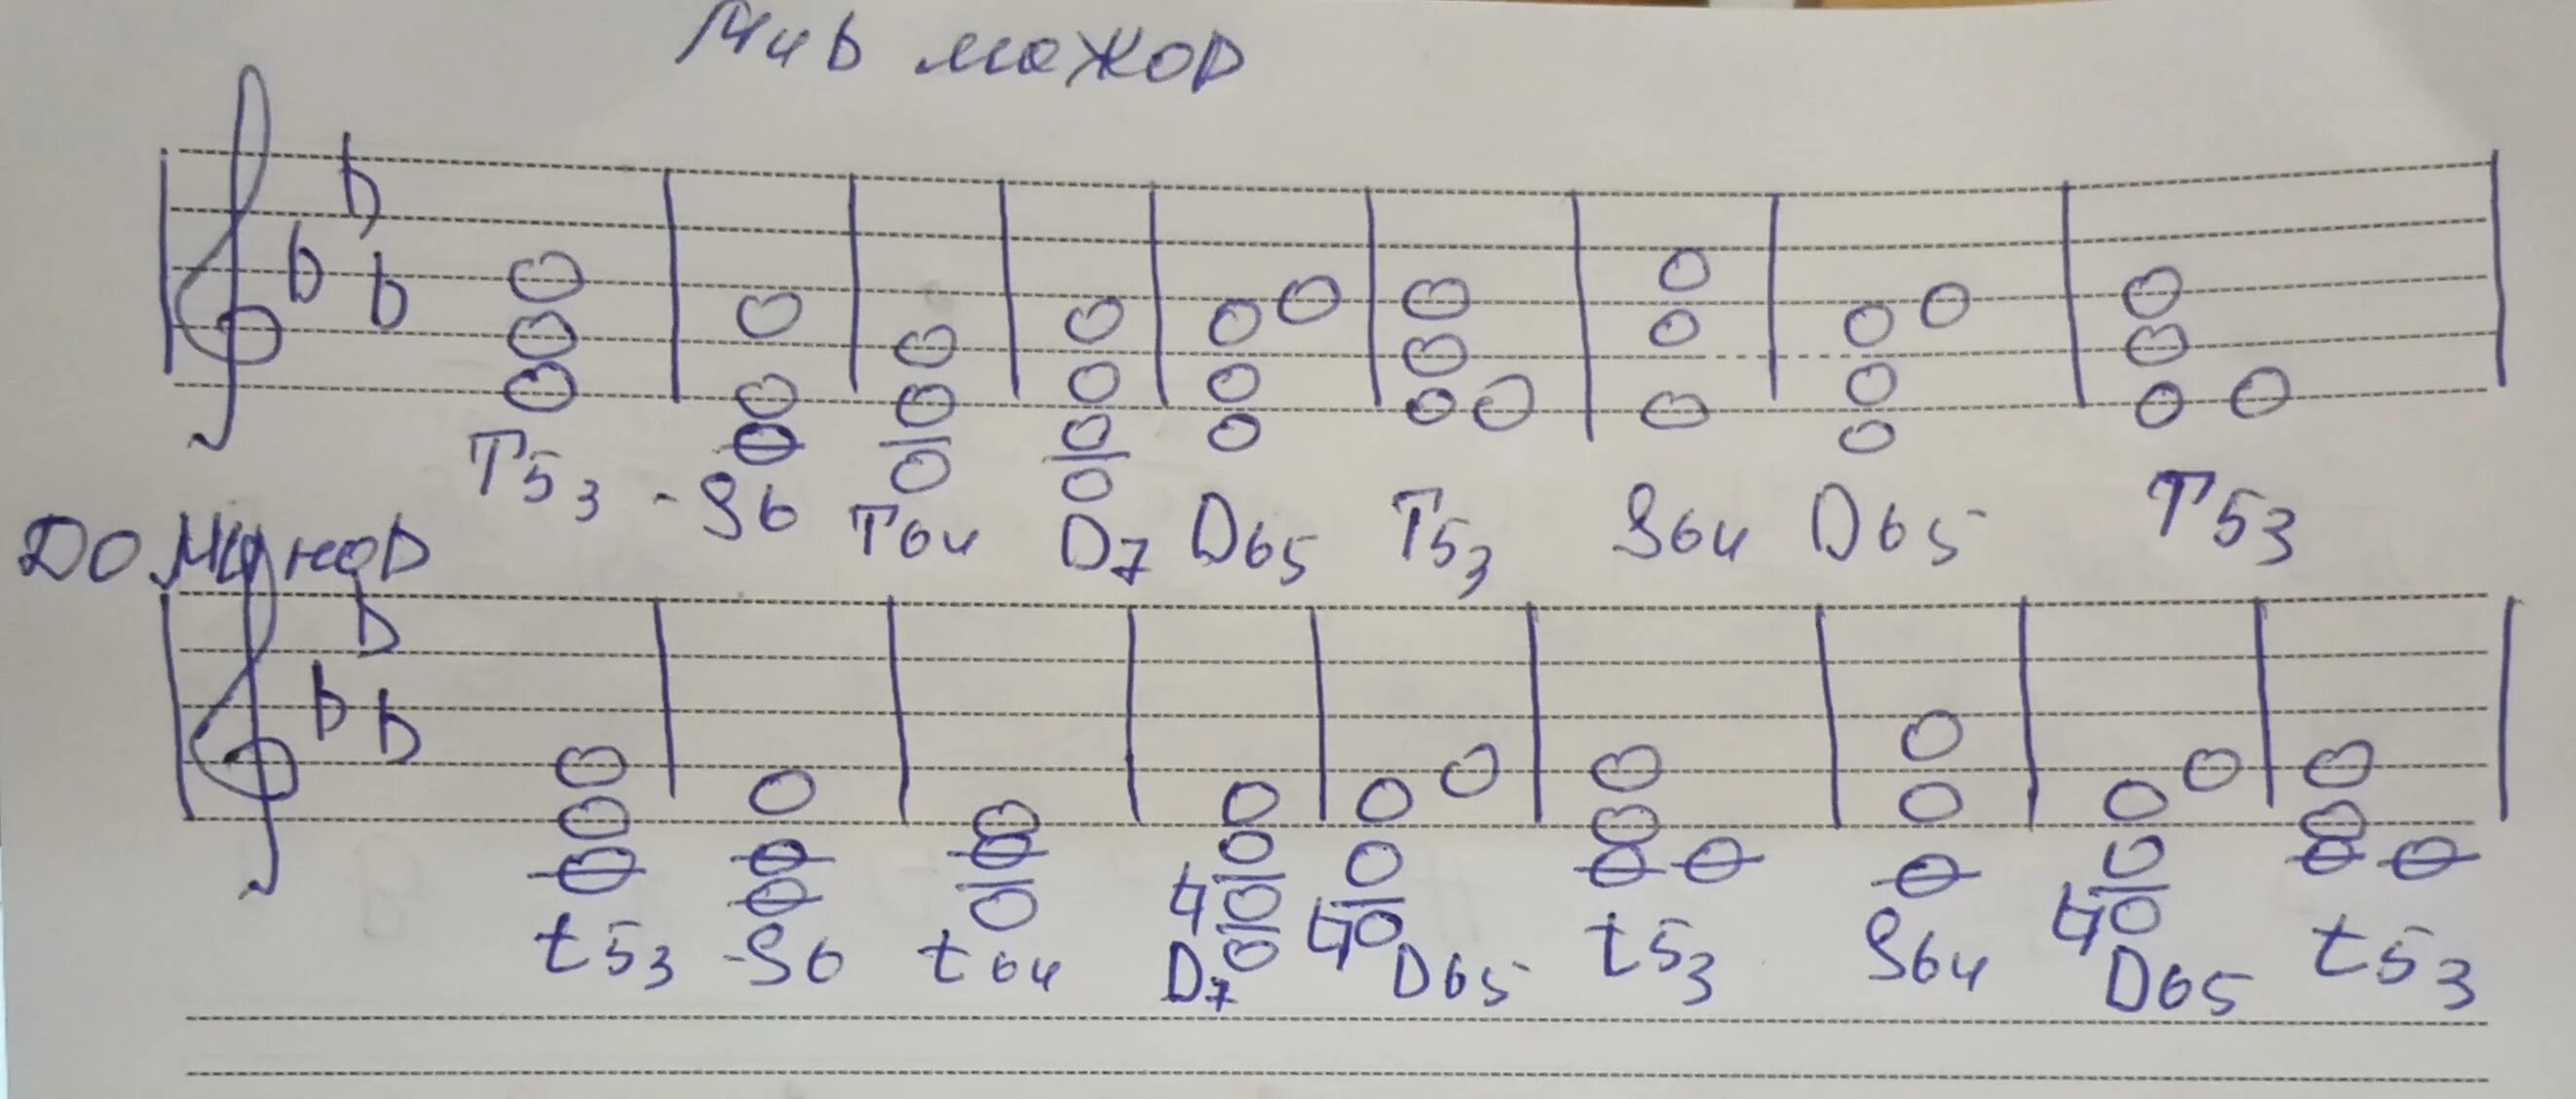 Ми b мажор
T53 -S6 T64 D7 D65 T53 S64 D65 T53
До минор
t53 -S6 t64 D7 D65 t53 S64 D65 t53